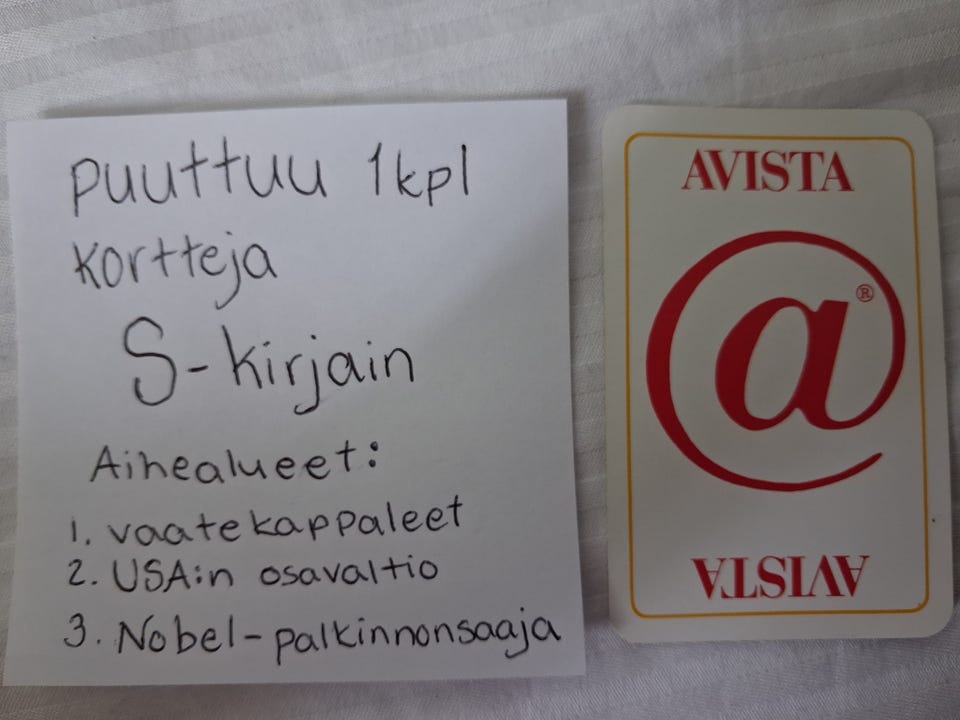 puuttuu 1kpl
kortteja
S-kirjain
Aihealueet:
1. vaatekappaleet
2. USA:n osavaltio
3. Nobel-palkinnonsaaja
AVISTA
@®
AVISTA